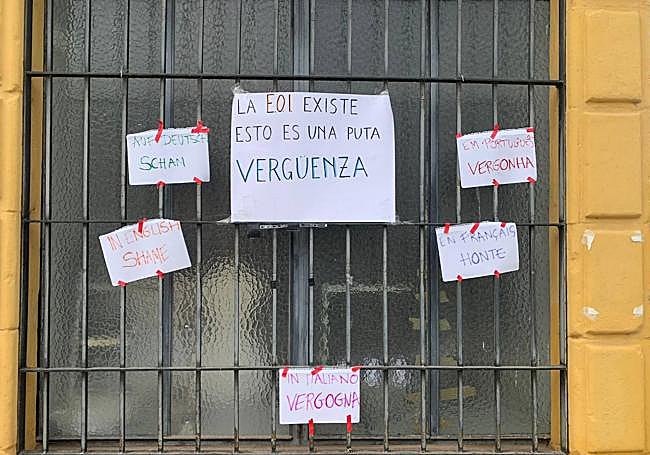 LA EOI EXISTE
ESTO ES UNA PUTA
VERGÜENZA
AUF DEUTSCH
SCHAN
EM PORTUGUÊS
VERGONHA
IN ENGLISH
SHAME
EN FRANÇAIS
HONTE
IN ITALIANO
VERGOGNA